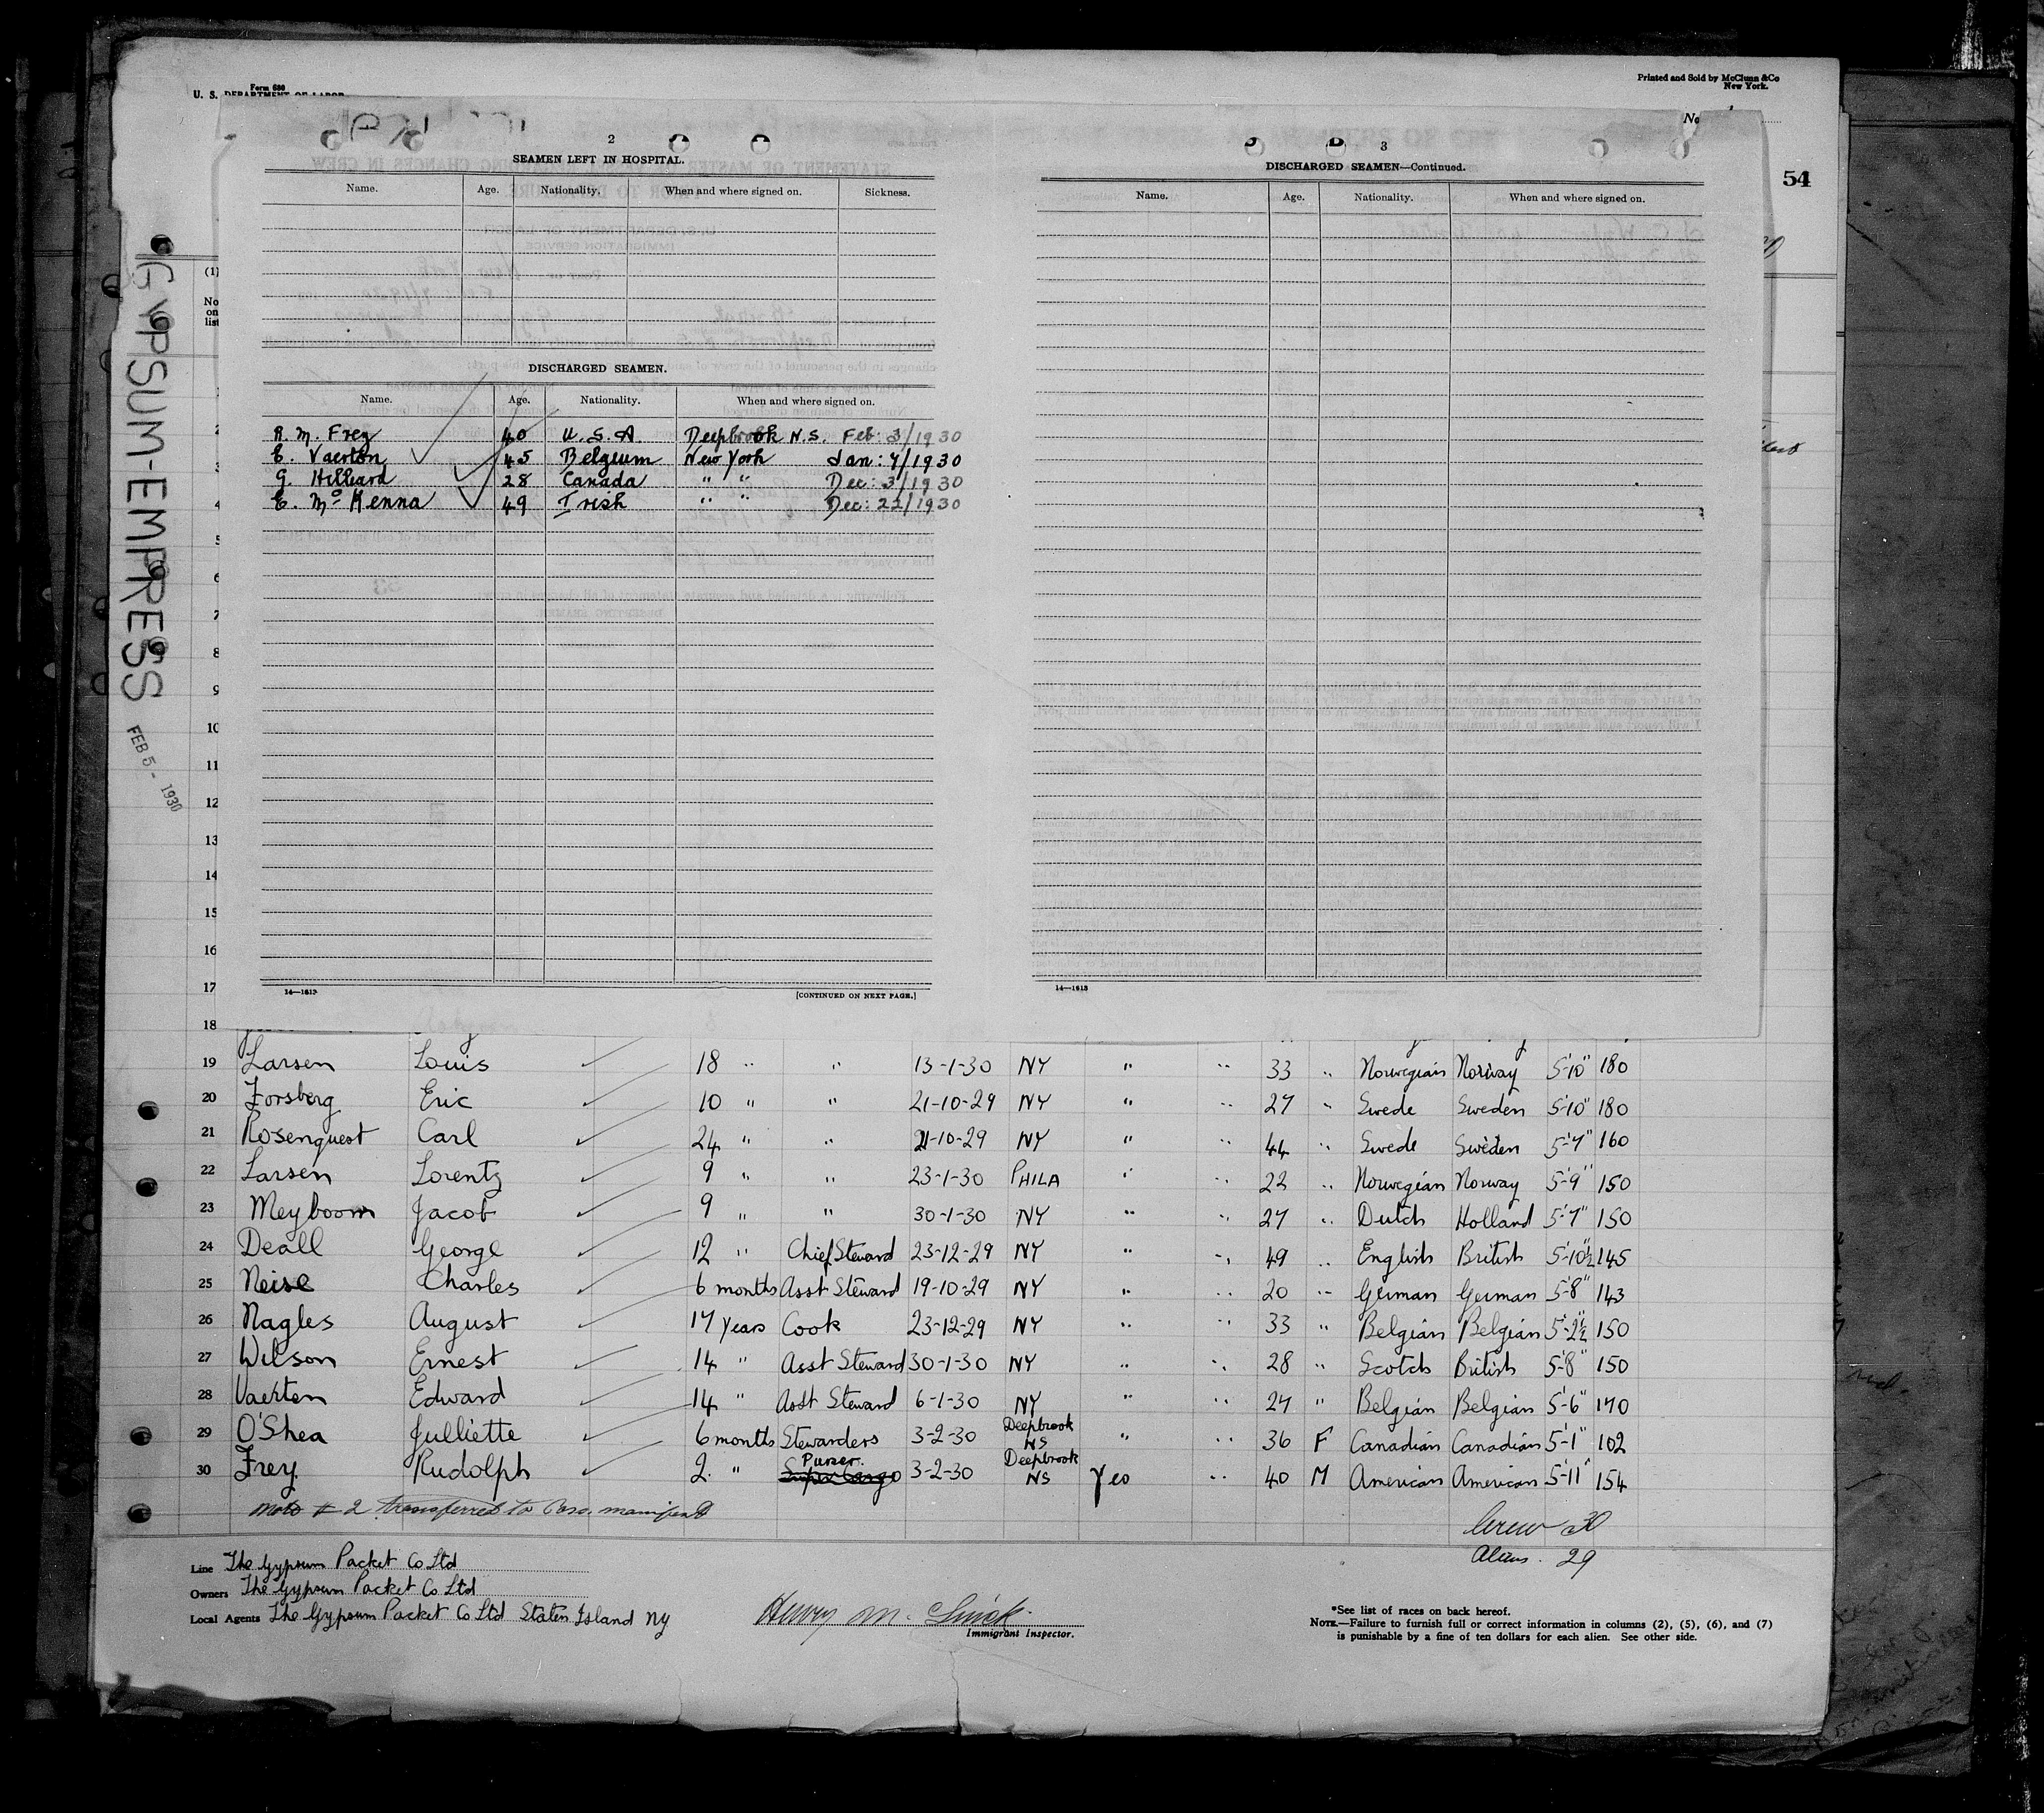 Form 680
U. S. DEPARTMENT OF LABOR
Printed and Sold by McClunn & Co
New York.
No
54
GYPSUM-EMPRESS
FEB 5 - 1930
2
SEAMEN LEFT IN HOSPITAL.
Name. Age. Nationality. When and where signed on. Sickness.
DISCHARGED SEAMEN.
Name. Age. Nationality. When and where signed on.
R. M. Frey 40 U.S.A. Deepbrook N.S. Feb: 3/1930
E. Vaerten 45 Belgium New York Jan: 7/1930
G. Hilliard 28 Canada " " Dec: 3/1930
E. Mc Kenna 49 Irish " " Dec: 22/1930
14—1613
[CONTINUED ON NEXT PAGE.]
3
DISCHARGED SEAMEN—Continued.
Name. Age. Nationality. When and where signed on.
14—1613
(1)
No
on
list
2
3
4
5
6
7
8
9
10
11
12
13
14
15
16
17
18
19 Larsen Louis 18 " " 13-1-30 NY " " 33 " Norwegian Norway 5'-10" 180
20 Forsberg Eric 10 " " 21-10-29 NY " " 27 " Swede Sweden 5'-10" 180
21 Rosenquest Carl 24 " " 21-10-29 NY " " 44 " Swede Sweden 5'-7" 160
22 Larsen Lorentz 9 " " 23-1-30 PHILA " " 22 " Norwegian Norway 5'-9" 150
23 Meyboom Jacob 9 " " 30-1-30 NY " " 27 " Dutch Holland 5'-7" 150
24 Deall George 12 " Chief Steward 23-12-29 NY " " 49 " English British 5'-10½" 145
25 Neise Charles 6 months Asst Steward 19-10-29 NY " " 20 " German German 5'-8" 143
26 Nagles August 17 years Cook 23-12-29 NY " " 33 " Belgian Belgian 5'-2½" 150
27 Wilson Ernest 14 " Asst Steward 30-1-30 NY " " 28 " Scotch British 5'-8" 150
28 Vaerten Edward 14 " Asst Steward 6-1-30 NY " " 27 " Belgian Belgian 5'-6" 170
29 O'Shea Julliette 6 months Stewardess 3-2-30 Deepbrook NS " " 36 F Canadian Canadian 5'-1" 102
30 Frey Rudolph 2 " Purser Supercargo 3-2-30 Deepbrook NS Yes " 40 M American American 5'-11" 154
Note # 2 transferred to Cons. manifest
Crew 30
Aliens. 29
Line The Gypsum Packet Co Ltd
Owners The Gypsum Packet Co Ltd
Local Agents The Gypsum Packet Co Ltd Staten Island NY
Henry M.
Immigrant Inspector.
*See list of races on back hereof.
NOTE.—Failure to furnish full or correct information in columns (2), (5), (6), and (7)
is punishable by a fine of ten dollars for each alien. See other side.